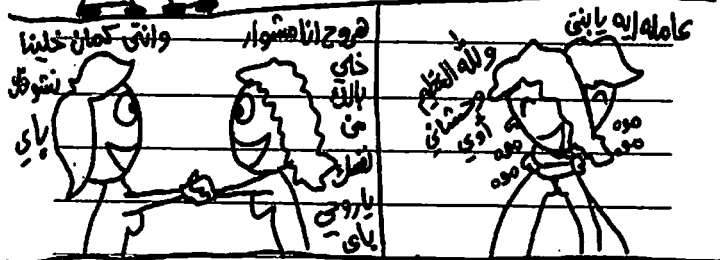 عامله ايه يا بنتي
والله العظيم
وحشاني
أوي
موه
موه
موه
موه
موه
هروح انا مشوار
خلي
بالك
من
نفسك
يا روحي
باي
وانتي كمان خلينا
نشوفك
باي